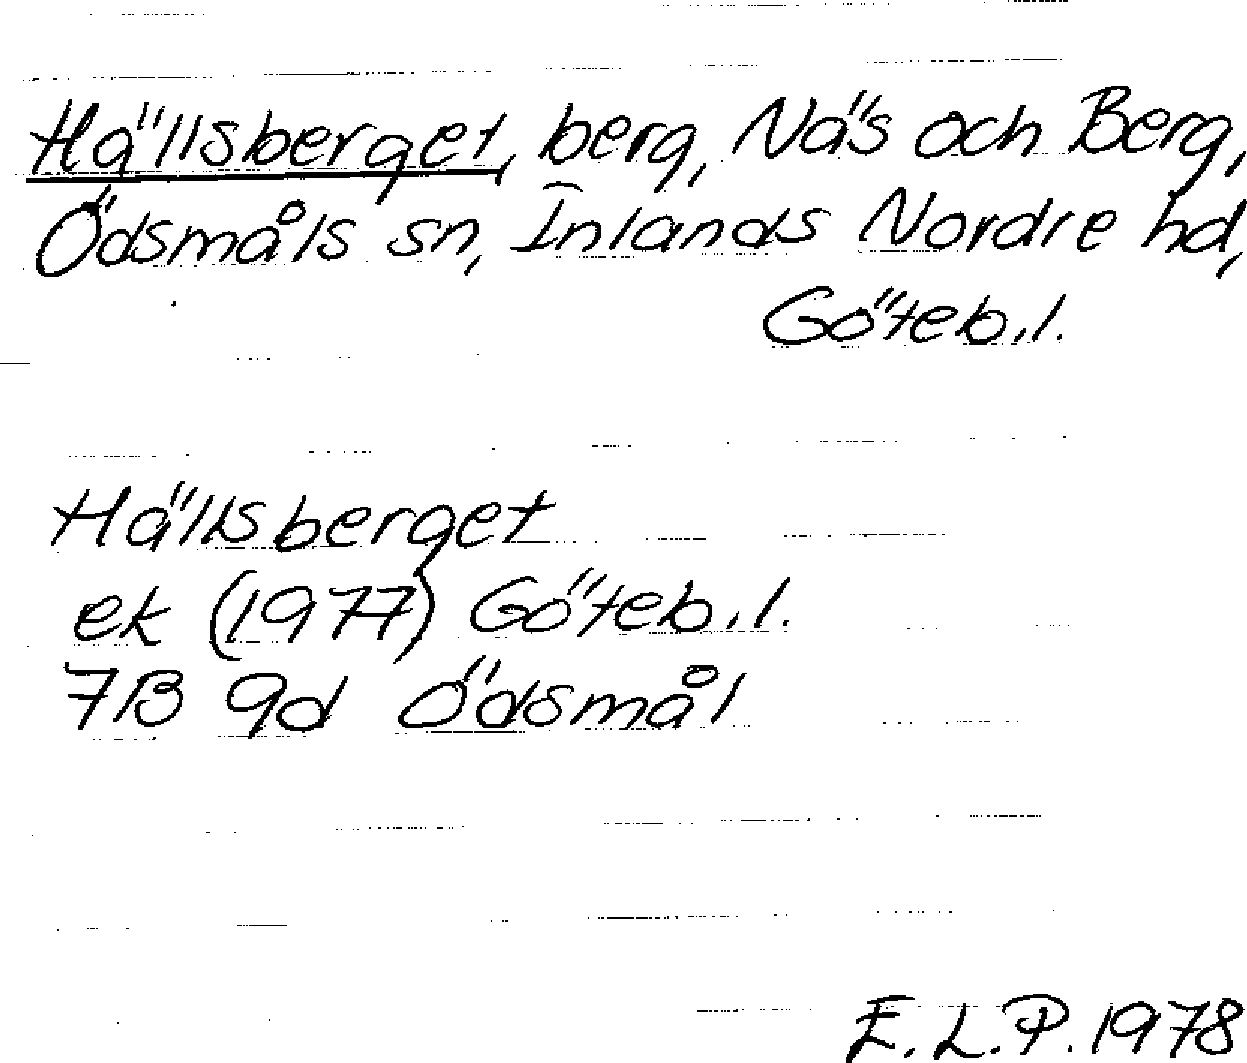 Hällsberget, berg, Näs och Berg,
Ödsmåls sn, Inlands Nordre hd,
Göteb.l.
Hällsberget
ek (1977) Göteb.l.
7B 9d Ödsmål
E.L.P. 1978